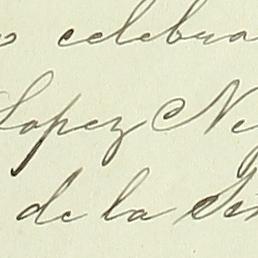 celebra
Lopez Ne
de la Se